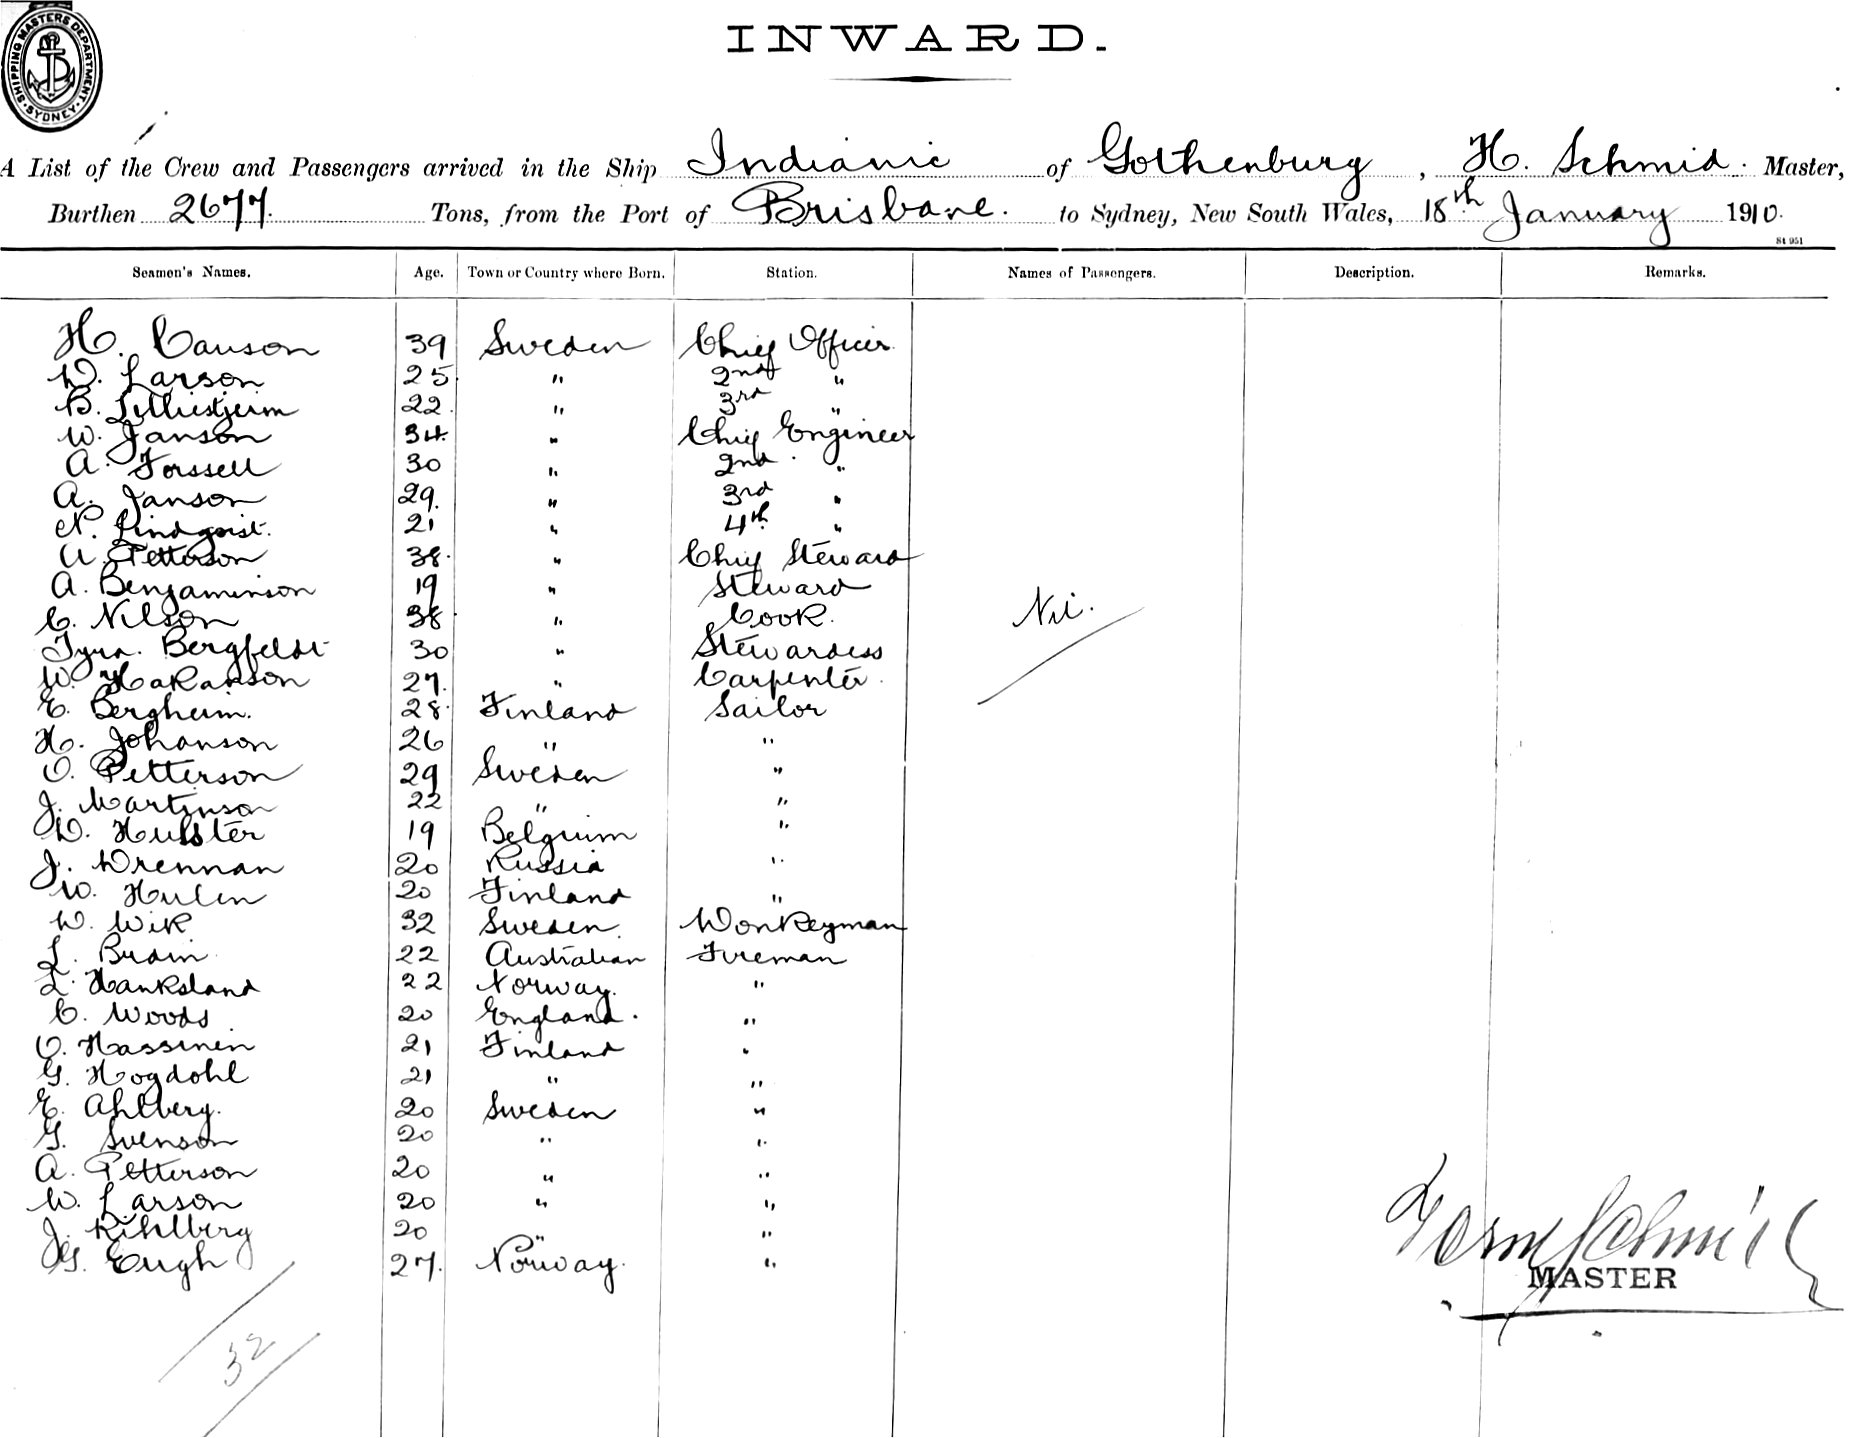 SHIPPING MASTERS DEPARTMENT. SYDNEY
INWARD.
A List of the Crew and Passengers arrived in the Ship Indianic of Gothenburg, H. Schmid. Master,
Burthen 2677. Tons, from the Port of Brisbane. to Sydney, New South Wales, 18th January 1910.
St 951
Seamen's Names. Age. Town or Country where Born. Station. Names of Passengers. Description. Remarks.
H. Causon 39 Sweden Chief Officer
W. Larson 25. " 2nd "
B. Lilliestjeim 22. " 3rd "
W. Janson 34. " Chief Engineer
A. Forssell 30 " 2nd "
A. Janson 29. " 3rd "
N. Lindqvist. 21 " 4th "
A. Petterson 38. " Chief Steward
A. Benjaminson 19 " Steward
C. Nilson 38 " Cook. Nil.
Tyra. Bergfeldt 30 " Stewardess
W. Hakanson 27. " Carpenter.
E. Bergheim. 28. Finland Sailor
H. Johanson 26 " "
O. Petterson 29 Sweden "
J. Martinson 22 " "
D. Hulster 19 Belguim "
J. Drennan 20 Russia "
W. Hulin 20 Finland "
D. Wik 32 Sweden. Donkeyman
L. Brain 22 Australian Fireman
L. Hanksland 22 Norway. "
C. Woods 20 England. "
O. Hassinen 21 Finland "
G. Hogdohl 21 " "
E. Ahlberg. 20 Sweden "
G. Svenson 20 " "
A. Petterson 20 " "
W. Larson 20 " "
J. Kihlberg 20 " "
G. Eugh 27. Norway. "
32
Schmidt
MASTER